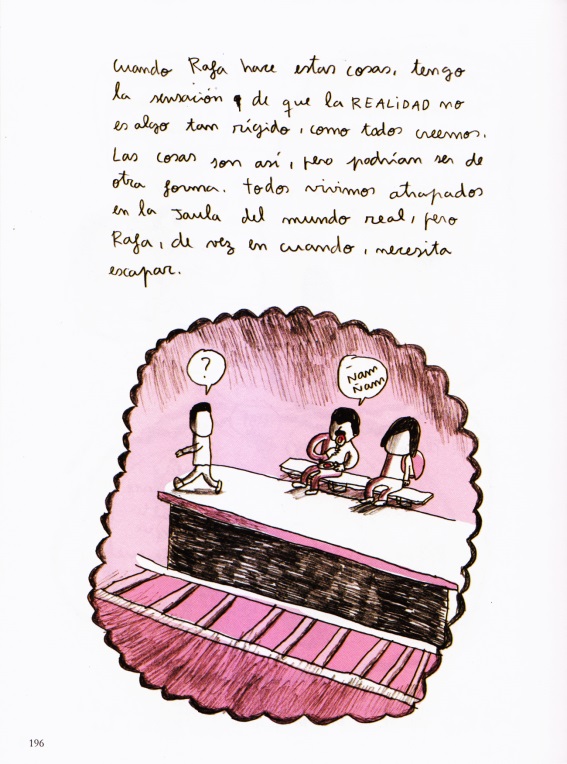 cuando Rafa hace estas cosas, tengo
la sensación de que la REALIDAD no
es algo tan rígido, como todos creemos.
Las cosas son así, pero podrían ser de
otra forma. todos vivimos atrapados
en la Jaula del mundo real, pero
Rafa, de vez en cuando, necesita
escapar.
?
ÑAM
ÑAM
196